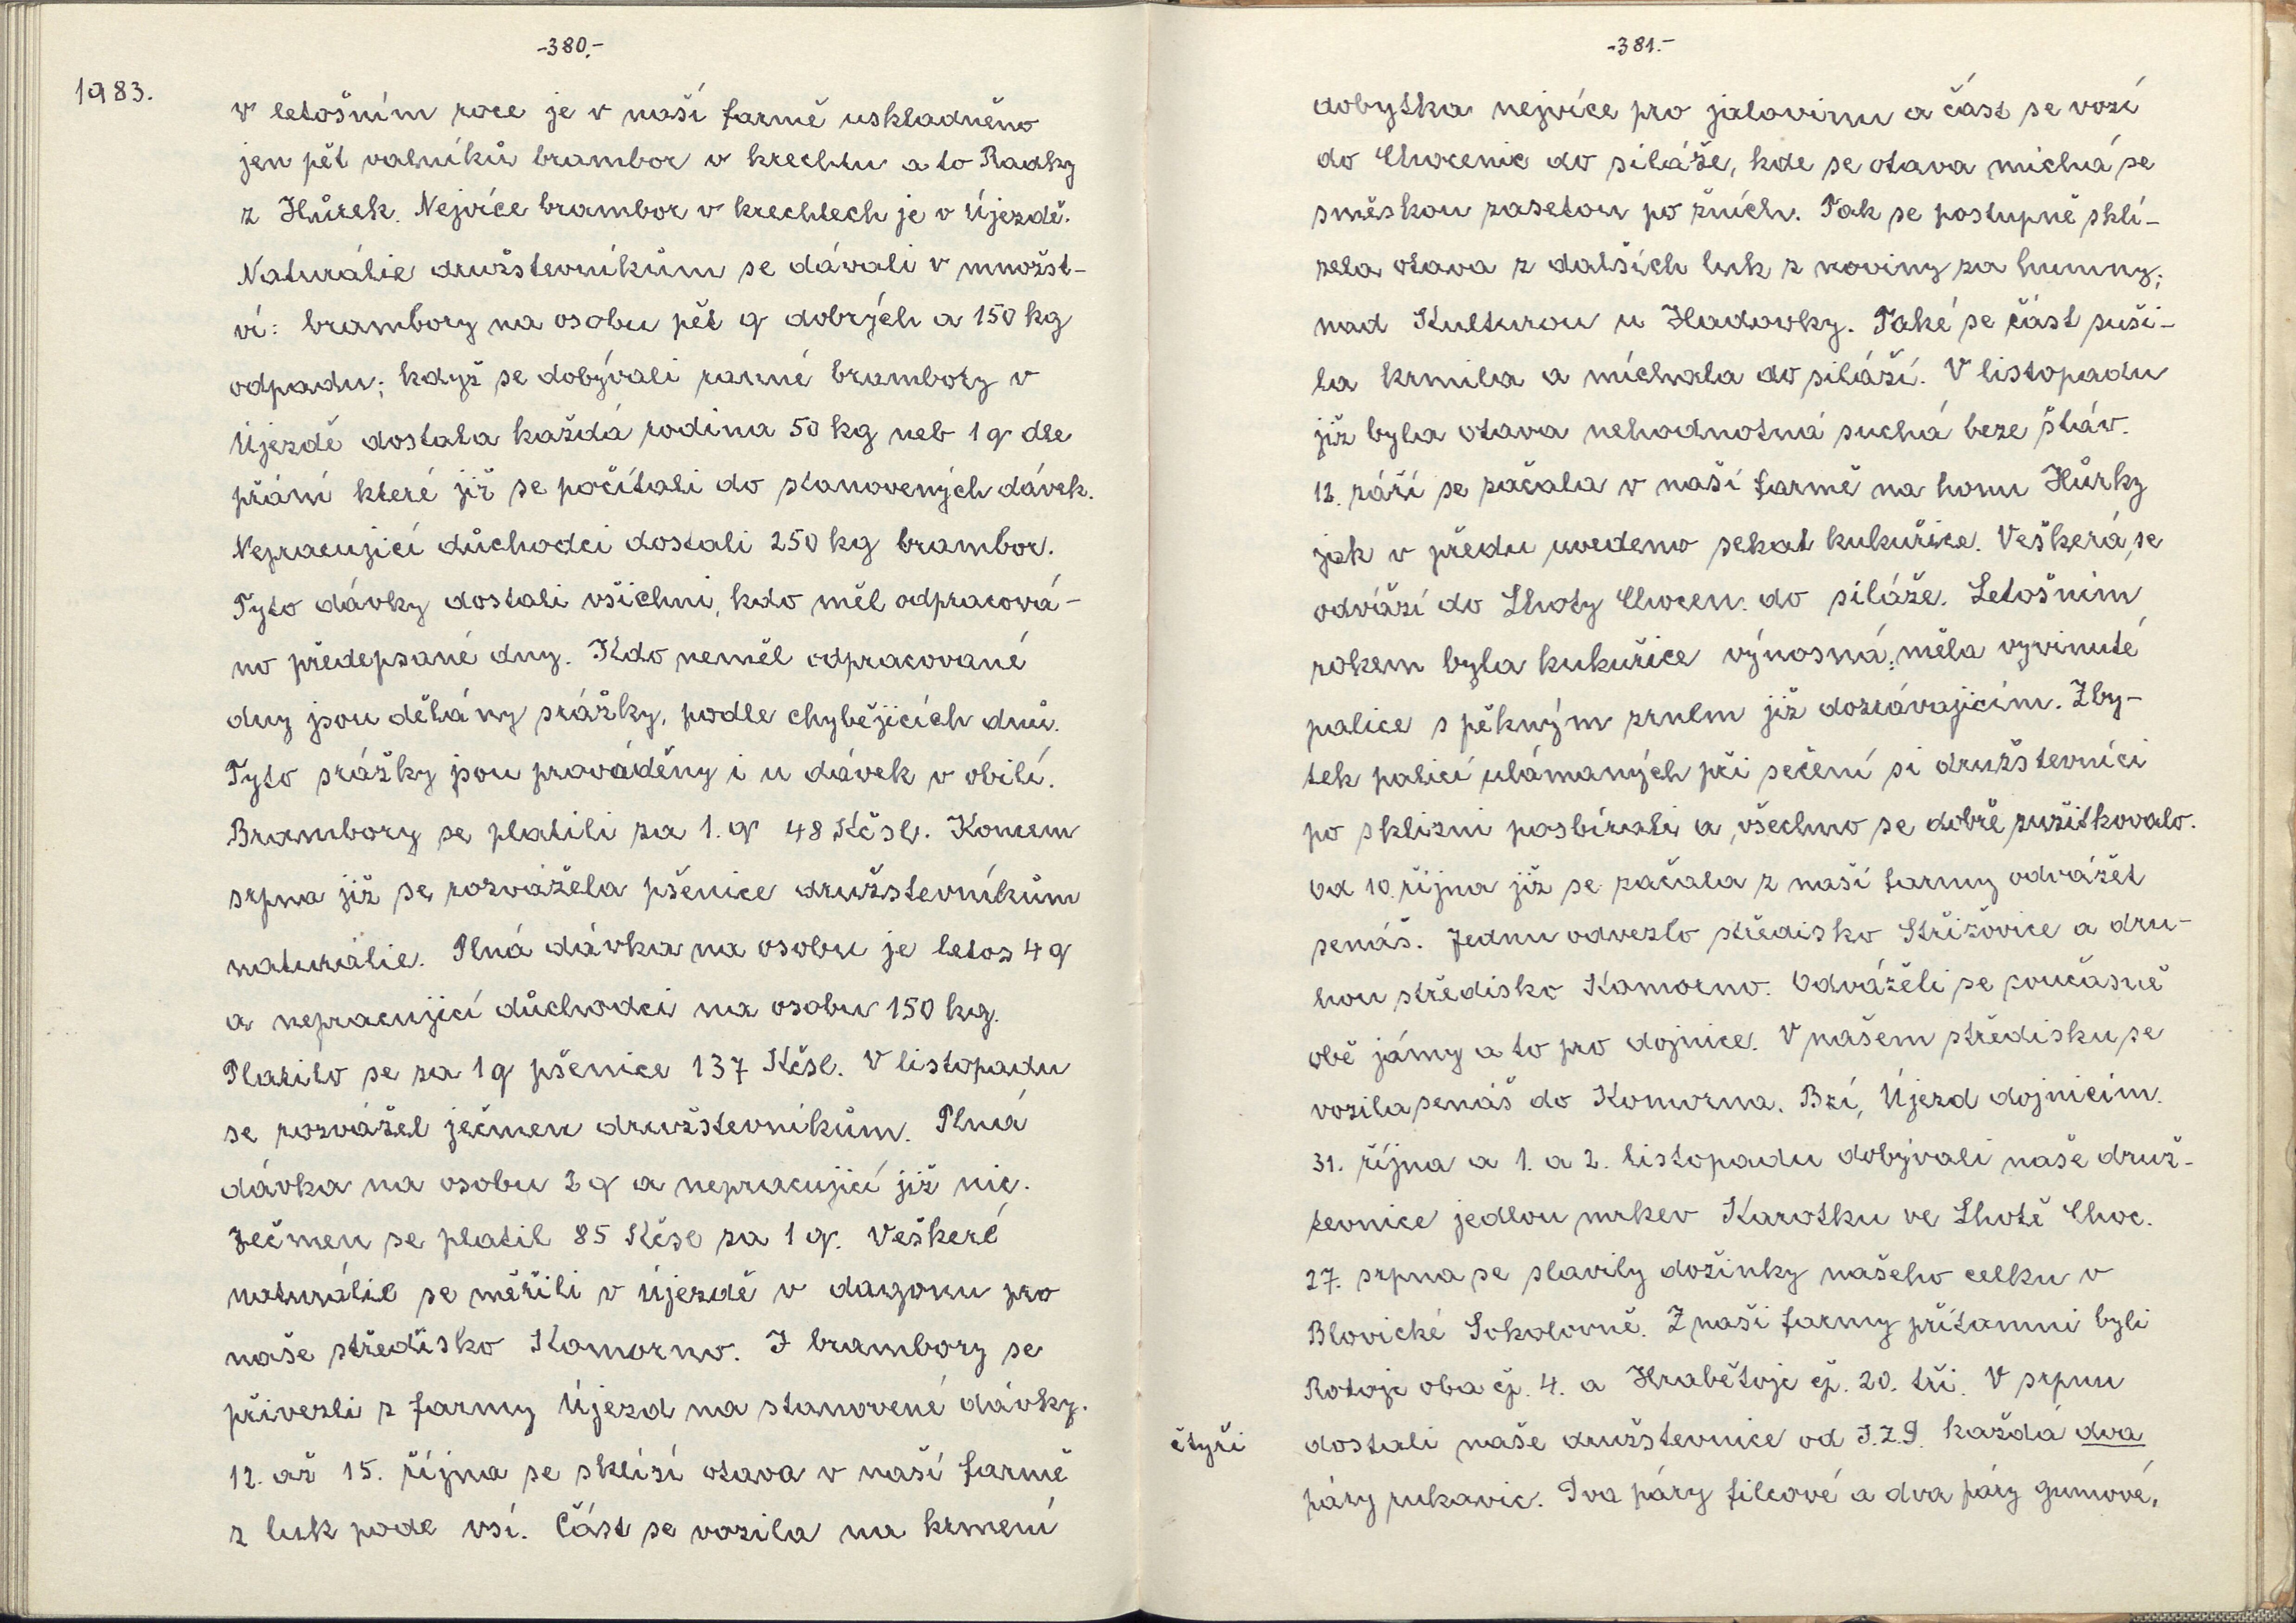 -380.-
1983.
v letošním roce je v naší farmě uskladněno
jen pět valníků brambor v krechtu a to Radky
z Hůrek. Nejvíce brambor v krechtech je v Újezdě.
Naturálie družstevníkům se dávali v množst-
ví: brambory na osobu pět q dobrých a 150 kg
odpadu; když se dobývali ranné brambory v
Újezdě dostala každá rodina 50 kg neb 1 q dle
přání které již se počítali do stanovených dávek.
Nepracujicí důchodci dostali 250 kg brambor.
Tyto dávky dostali všichni, kdo měl odpracová-
no předepsané dny. Kdo neměl odpracované
dny jsou dělány srážky, podle chybějicích dnů.
Tyto srážky jsou prováděny i u dávek v obilí.
Brambory se platili za 1. q 48 Kčsl. Koncem
srpna již se rozvážela pšenice družstevníkům
naturálie. Plná dávka na osobu je letos 4 q
a nepracujicí důchodci na osobu 150 kg.
Platilo se za 1 q pšenice 137 Kčsl. V listopadu
se rozvážel ječmen družstevníkům. Plná
dávka na osobu 3 q a nepracujicí již nic.
Ječmen se platil 85 Kčsl za 1 q. Veškeré
naturálie se měřili v Újezdě v dagonu pro
naše středisko Komorno. I brambory se
přivezli z farmy Újezd na stanovené dávky.
12. až 15. října se sklízí otava v naší farmě
z luk pode vsí. Část se vozila na krmení
-381.-
dobytka nejvíce pro jalovinu a část se vozí
do Chocenic do siláže, kde se otava míchá se
směskou zasetou po žních. Tak se postupně sklí-
zela otava z dalších luk z noviny za humny,
nad Kulturou u Hadovky. Také se část suši-
la krmila a míchala do siláží. V listopadu
již byla otava nehodnotná suchá beze šťáv.
12. září se začala v naší farmě na honu Hůrky
jak v předu uvedeno sekat kukuřice. Veškerá se
odváží do Lhoty Chocen. do siláže. Letošním
rokem byla kukuřice výnosná, měla vyvinuté
palice s pěkným zrnem již dozrávajicím. Zby-
tek palicí ulámaných při sečení si družstevníci
po sklizni posbírali a všechno se dobře zužitkovalo.
Od 10. října již se začala z naší farmy odvážet
senáš. Jednu odvezlo středisko Střížovice a dru-
hou středisko Komorno. Odváželi se současně
obě jámy a to pro dojnice. V našem středisku se
vozila senáš do Komorna. Bzí, Újezd dojnicím.
31. října a 1. a 2. listopadu dobývali naše druž-
tevnice jedlou mrkev Karotku ve Lhotě Choc.
27. srpna se slavily dožinky našeho celku v
Blovické Sokolovně. Z naši farmy přítamni byli
Rotojc oba čp. 4. a Hrabětojc čp. 20. tři. V srpnu
čtyři dostali naše družstevnice od J.Z.D. každá dva
páry rukavic. Dva páry filcové a dva páry gumové,